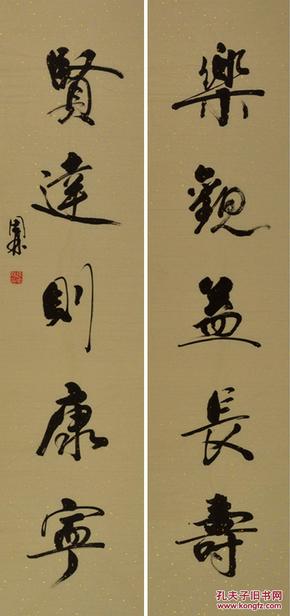 樂觀益長壽
賢達則康寧
孔夫子旧书网